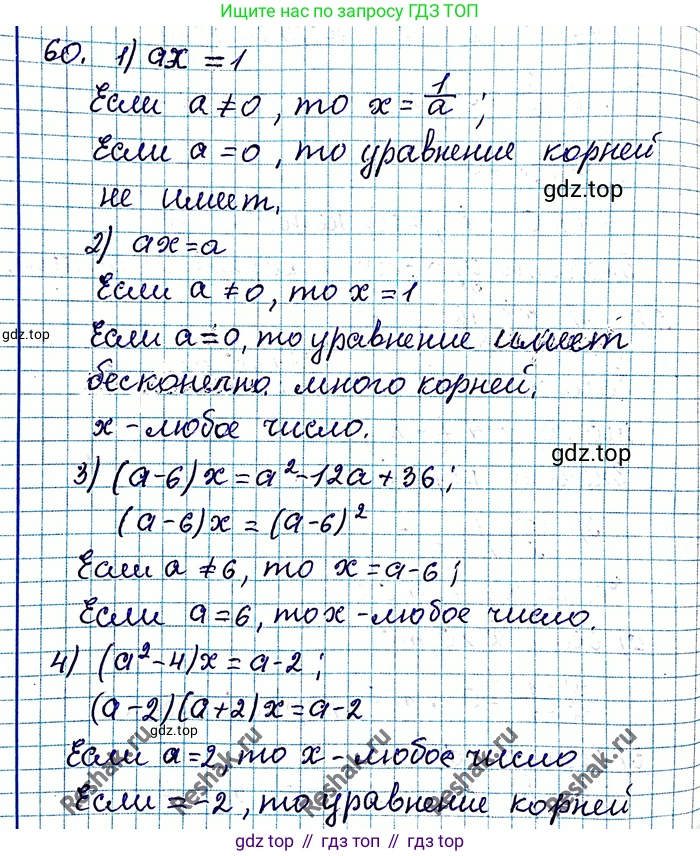 Ищите нас по запросу ГДЗ ТОП
60. 1) ax = 1
Если a ≠ 0, то x = 1/a ;
Если a = 0, то уравнение корней
gdz.top
не имеет.
2) ax = a
Если a ≠ 0, то x = 1
gdz.top
Если a = 0, то уравнение имеет
бесконечно много корней,
x - любое число.
gdz.top
3) (a-6)x = a² - 12a + 36 ;
(a-6)x = (a-6)²
Если a ≠ 6, то x = a-6 ;
Если a = 6, то x - любое число.
4) (a² - 4)x = a - 2 ;
(a-2)(a+2)x = a-2
gdz.top
Если a = 2, то x - любое число
Если = -2, то уравнение корней
Reshak.ru Reshak.ru Reshak.ru Reshak.ru
gdz.top // гдз.топ // gdz.top